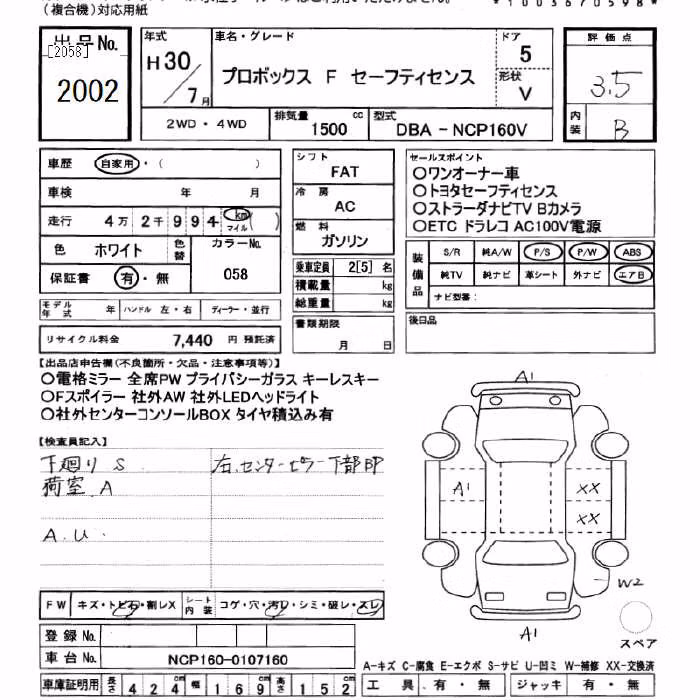 (複合機)対応用紙
*1003670598*
出品No.
[2058]
2002
年式
H30/7月
車名・グレード
プロボックス F セーフティセンス
ドア
5
形状
V
評価点
3.5
内装
B
2WD・4WD
排気量
1500 cc
型式
DBA - NCP160V
車歴 自家用・( )
車検 年 月
走行 4万 2千 9 9 4 km マイル ( )
色 ホワイト 色替 カラーNo.
保証書 有・無 058
モデル年式 年 ハンドル 左・右 ディーラー・並行
リサイクル料金 7,440 円 預託済
シフト
FAT
冷房
AC
燃料
ガソリン
乗車定員 2[5] 名
積載量 kg
総重量 kg
書類期限
月 日
セールスポイント
○ワンオーナー車
○トヨタセーフティセンス
○ストラーダナビTV Bカメラ
○ETC ドラレコ AC100V電源
装備品
S/R 純A/W P/S P/W ABS
純TV 純ナビ 革シート 外ナビ エアB
ナビ型番:
後日品
【出品店申告欄(不良箇所・欠品・注意事項等)】
○電格ミラー 全席PW プライバシーガラス キーレスキー
○Fスポイラー 社外AW 社外LEDヘッドライト
○社外センターコンソールBOX タイヤ積込み有
【検査員記入】
下廻り S 右、センターピラー下部凹
荷室 A
A.U.
A1
A1
XX
XX
W2
A1
スペア
FW キズ・トビ石・割レX シート内装 コゲ・穴・汚レ・シミ・破レ・スレ
登録No.
車台No. NCP160-0107160
A-キズ C-腐食 E-エクボ S-サビ U-凹ミ W-補修 XX-交換済
車庫証明用 長さ 424cm 幅 169cm 高さ 152cm
工具 有・無 ジャッキ 有・無